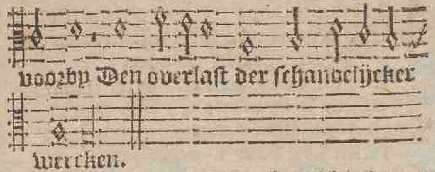 voorby Den overlast der schandelijcker
wercken.